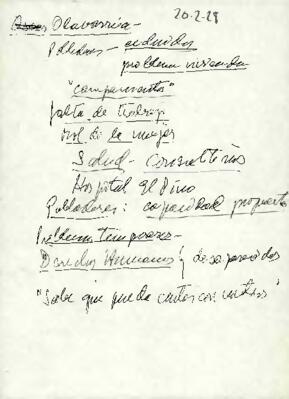 20-2-28
Olavarría -
Pobladores -
problema vivienda
"campamentos"
falta de trabajo
rol de la mujer
Salud - consultorios
Hospital El Pino
Pobladores: capacidad propuesta
Problemas temporales -
Derechos Humanos { desaparecidos
"Sabe que puede contar con nosotros"